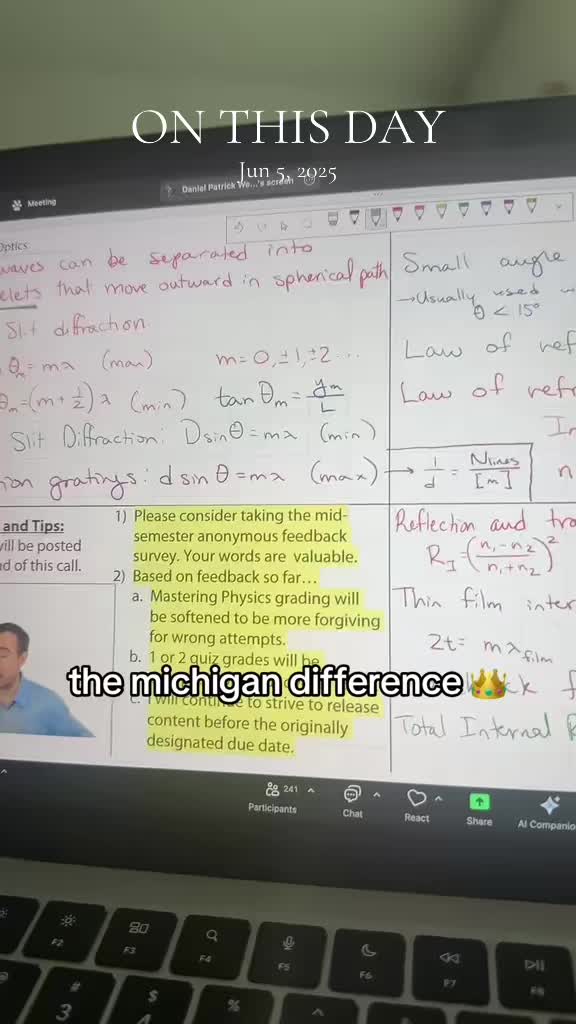 ON THIS DAY
Jun 5, 2025
Meeting
Daniel Patrick We...'s screen
Optics
waves can be separated into
elets that move outward in spherical path
Slit diffraction
θm = mλ (max) m = 0, ±1, ±2 ...
θm = (m + 1/2) λ (min) tan θm = ym/L
Slit Diffraction: D sin θ = mλ (min)
ion gratings: d sin θ = mλ (max) → 1/d = Nlines/[m]
Small angle
→ Usually used
θ < 15°
Law of ref
Law of refr
In
n
and Tips:
will be posted
nd of this call.
1) Please consider taking the mid-
semester anonymous feedback
survey. Your words are valuable.
2) Based on feedback so far...
a. Mastering Physics grading will
be softened to be more forgiving
for wrong attempts.
b. 1 or 2 quiz grades will be
the michigan difference 👑
c. I will continue to strive to release
content before the originally
designated due date.
Reflection and tra
RI = (n1 - n2 / n1 + n2)²
Thin film inter
2t = mλfilm
Total Internal R
241
Participants
Chat
React
Share
AI Companio
F2
F3
F4
F5
F6
F7
F8
#
3
$
4
%
^